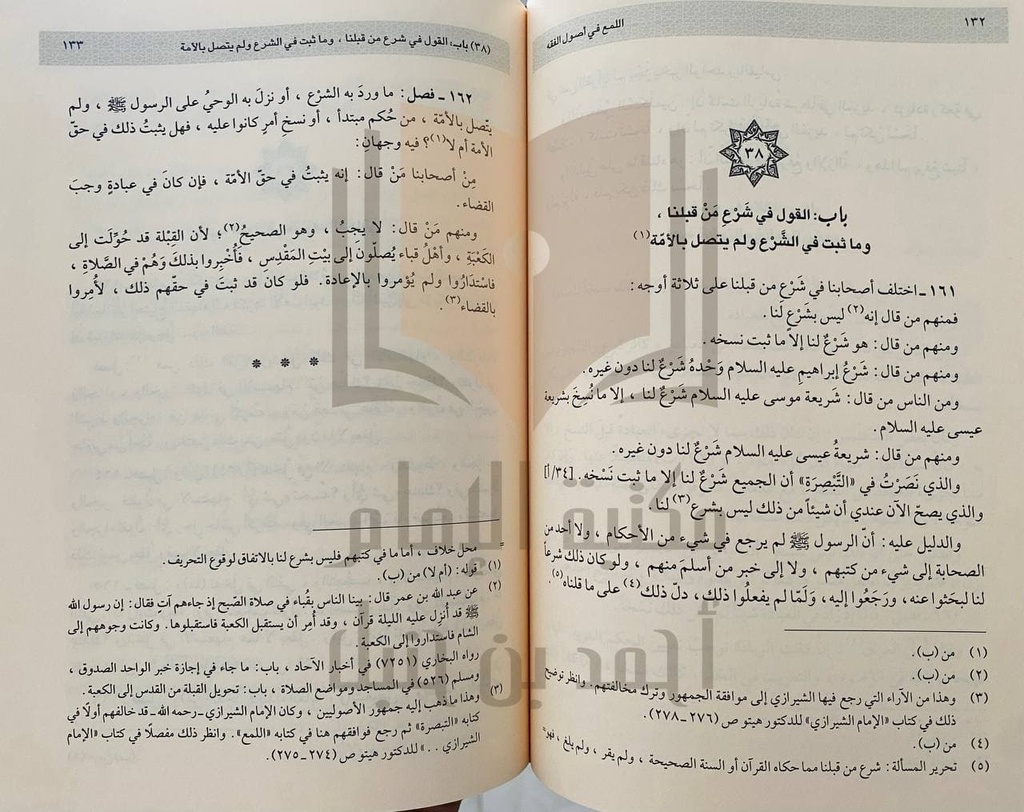 ١٣٢
اللمع في أصول الفقه
٣٨
باب: القول في شَرْعِ مَنْ قبلنا ،
وما ثبت في الشَّرْع ولم يتصل بالأمّة(١)
١٦١ـ اختلف أصحابنا في شَرْع من قبلنا على ثلاثة أوجه :
فمنهم من قال إنه(٢) ليس بشَرْعٍ لنا .
ومنهم من قال : هو شَرْعٌ لنا إلا ما ثبت نسخه .
ومنهم من قال : شَرْعُ إبراهيم عليه السلام وَحْدهُ شَرْعٌ لنا دون غيره .
ومن الناس من قال : شريعة موسى عليه السلام شَرْعٌ لنا ، إلا ما نُسِخَ بشريعة
عيسى عليه السلام .
ومنهم من قال : شريعةُ عيسى عليه السلام شَرْعٌ لنا دون غيره .
والذي نَصَرْتُ في «التَّبْصِرَةِ» أن الجميع شَرْعٌ لنا إلا ما ثبت نَسْخه . [٣٤/أ]
والذي يصحّ الآن عندي أن شيئاً من ذلك ليس بشرع(٣) لنا .
والدليل عليه : أنّ الرسول ﷺ لم يرجع في شيء من الأحكام ، ولا أحد من
الصحابة إلى شيء من كتبهم ، ولا إلى خبر من أسلمَ منهم ، ولو كان ذلك شرعاً
لنا لبحَثوا عنه ، ورَجَعُوا إليه ، وَلَمّا لم يفعلُوا ذلك ، دلّ ذلك(٤) على ما قلناه(٥).
(١) من (ب).
(٢) من (ب).
(٣) وهذا من الآراء التي رجع فيها الشيرازي إلى موافقة الجمهور وترك مخالفتهم. وانظر توضيح
ذلك في كتاب «الإمام الشيرازي» للدكتور هيتو ص (٢٧٦ـ٢٧٨).
(٤) من (ب).
(٥) تحرير المسألة: شرع من قبلنا مما حكاه القرآن أو السنة الصحيحة ، ولم يقر ، ولم يلغ ، فهو=
(٣٨) باب: القول في شرع من قبلنا ، وما ثبت في الشرع ولم يتصل بالأمة
١٣٣
١٦٢ـ فصل : ما وردَ به الشرْع ، أو نزلَ به الوحيُ على الرسول ﷺ ، ولم
يتّصل بالأمّة ، من حُكم مبتدأ ، أو نسخ أمرٍ كانوا عليه ، فهل يثبتُ ذلك في حقّ
الأمة أم لا(١)؟ فيه وجهانِ :
مِنْ أصحابنا مَنْ قال : إنه يثبتُ في حقّ الأمّة ، فإن كانَ في عبادةٍ وجبَ
القضاء .
ومنهم مَنْ قال : لا يجبُ ، وهو الصحيحُ(٢)؛ لأن القِبْلة قد حُوِّلَت إلى
الكَعْبَةِ ، وأهْلُ قباء يُصلّون إلى بيْتِ المَقْدِس ، فأُخْبِروا بذلكَ وَهُمْ في الصَّلاةِ ،
فاسْتدَارُوا ولم يُؤمروا بالإعادة . فلو كان قد ثبتَ في حقّهم ذلك ، لأُمِروا
بالقضاء(٣).
* * *
= محل خلاف ، أما ما في كتبهم فليس بشرع لنا بالاتفاق لوقوع التحريف .
(١) قوله: (أم لا) من (ب).
(٢) عن عبدالله بن عمر قال: بينا الناس بقُباء في صلاة الصّبح إذ جاءهم آتٍ فقال: إن رسول الله
ﷺ قد أُنزل عليه الليلة قرآن ، وقد أُمِر أن يستقبل الكعبة فاستقبلوها. وكانت وجوههم إلى
الشام فاستداروا إلى الكعبة .
رواه البخاري (٧٢٥١) في أخبار الآحاد ، باب: ما جاء في إجازة خبر الواحد الصدوق ،
ومسلم (٥٢٦) في المساجد ومواضع الصلاة ، باب: تحويل القبلة من القدس إلى الكعبة.
(٣) وهذا ما ذهب إليه جمهور الأصوليين ، وكان الإمام الشيرازي ـ رحمه الله ـ قد خالفهم أولًا في
كتابه «التبصرة» ثم رجع فوافقهم هنا في كتابه «اللمع» . وانظر ذلك مفصلًا في كتاب «الإمام
الشيرازي ..» للدكتور هيتو ص (٢٧٤ـ٢٧٥).
مكتبة الإمام
أحمد بن